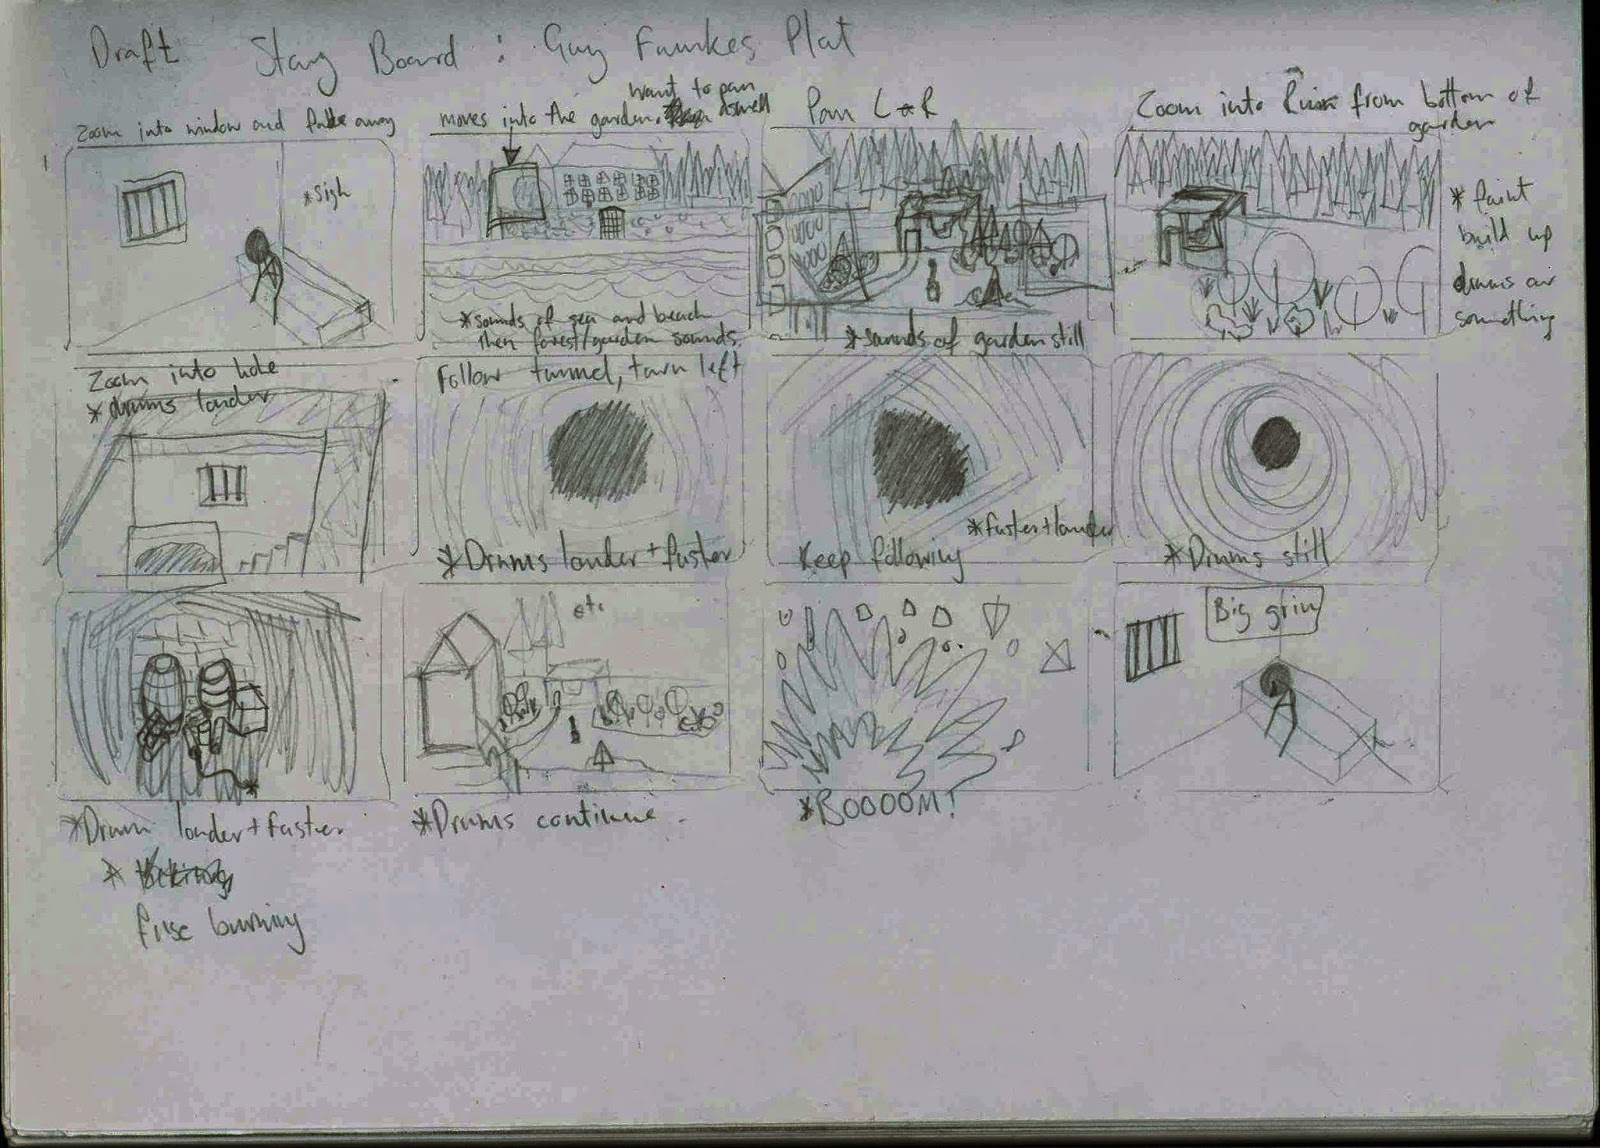 Draft Story Board : Guy Fawkes Plot
1
Zoom into window and fade away
*sigh
want to pan
moves into the garden. aswell
*sounds of sea and beach
then forest/garden sounds.
Pan L → R
*sounds of garden still
Zoom into Ruin from bottom of
garden
* faint
build up
drums or
something
Zoom into hole
* drums louder
Follow tunnel, turn left
*Drums louder + faster
*faster + louder
Keep following
*Drums still
*Drum louder + faster
*
fuse burning
etc
*Drums continue.
*BOOOOM!
Big grin